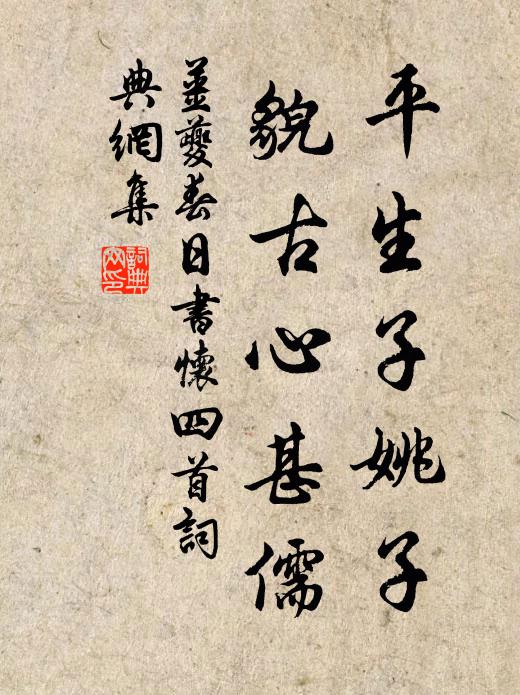 平生子姚子
貌古心甚儒
姜夔春日書懷四首詞
典網集
詞典網印